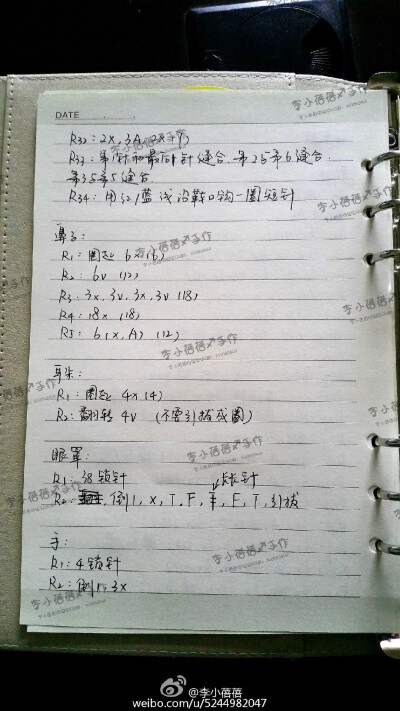 DATE
R32: 2X, 3A,
R33: 第1针和最后1针缝合, 第2与第6缝合,
第3与第5缝合
R34: 用红/蓝线沿鞋口钩一圈短针
鼻子:
R1: 圈起 6X (6)
R2: 6V (12)
R3: 3X, 3V, 3X, 3V (18)
R4: 18X (18)
R5: 6(X, A) (12)
耳朵:
R1: 圈起 4X (4)
R2: 翻转 4V (不需引拔成圈)
眼罩:
R1: 38锁针 长长针
R2: 倒1, X, T, F, F, T, 引拔
手:
R1: 4锁针
R2: 倒1, 3X
李小蓓蓓手作
@李小蓓蓓
weibo.com/u/5244982047